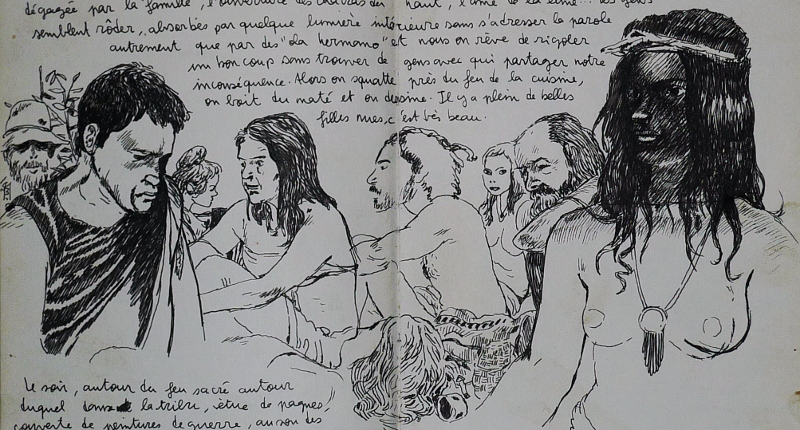 dégagée par la famille, l'ouverture des chakras du haut, l'âme de la
semblent rôder, absorbés par quelque lumière intérieure sans s'adresser la parole
autrement que par des "ola hermano" et nous on rêve de rigoler
un bon coup sans trouver de gens avec qui partager notre
inconséquence. Alors on squatte près du feu de la cuisine,
on boit du maté et on dessine. Il y a plein de belles
filles nues, c'est très beau.
Le soir, autour du feu sacré autour
duquel danse la tribu, vêtue de pagnes,
couverte de peintures de guerre, au son des